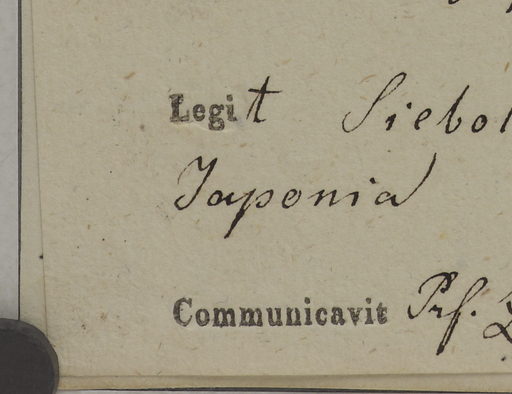 Legit Siebol
Japonia
Communicavit Prf.